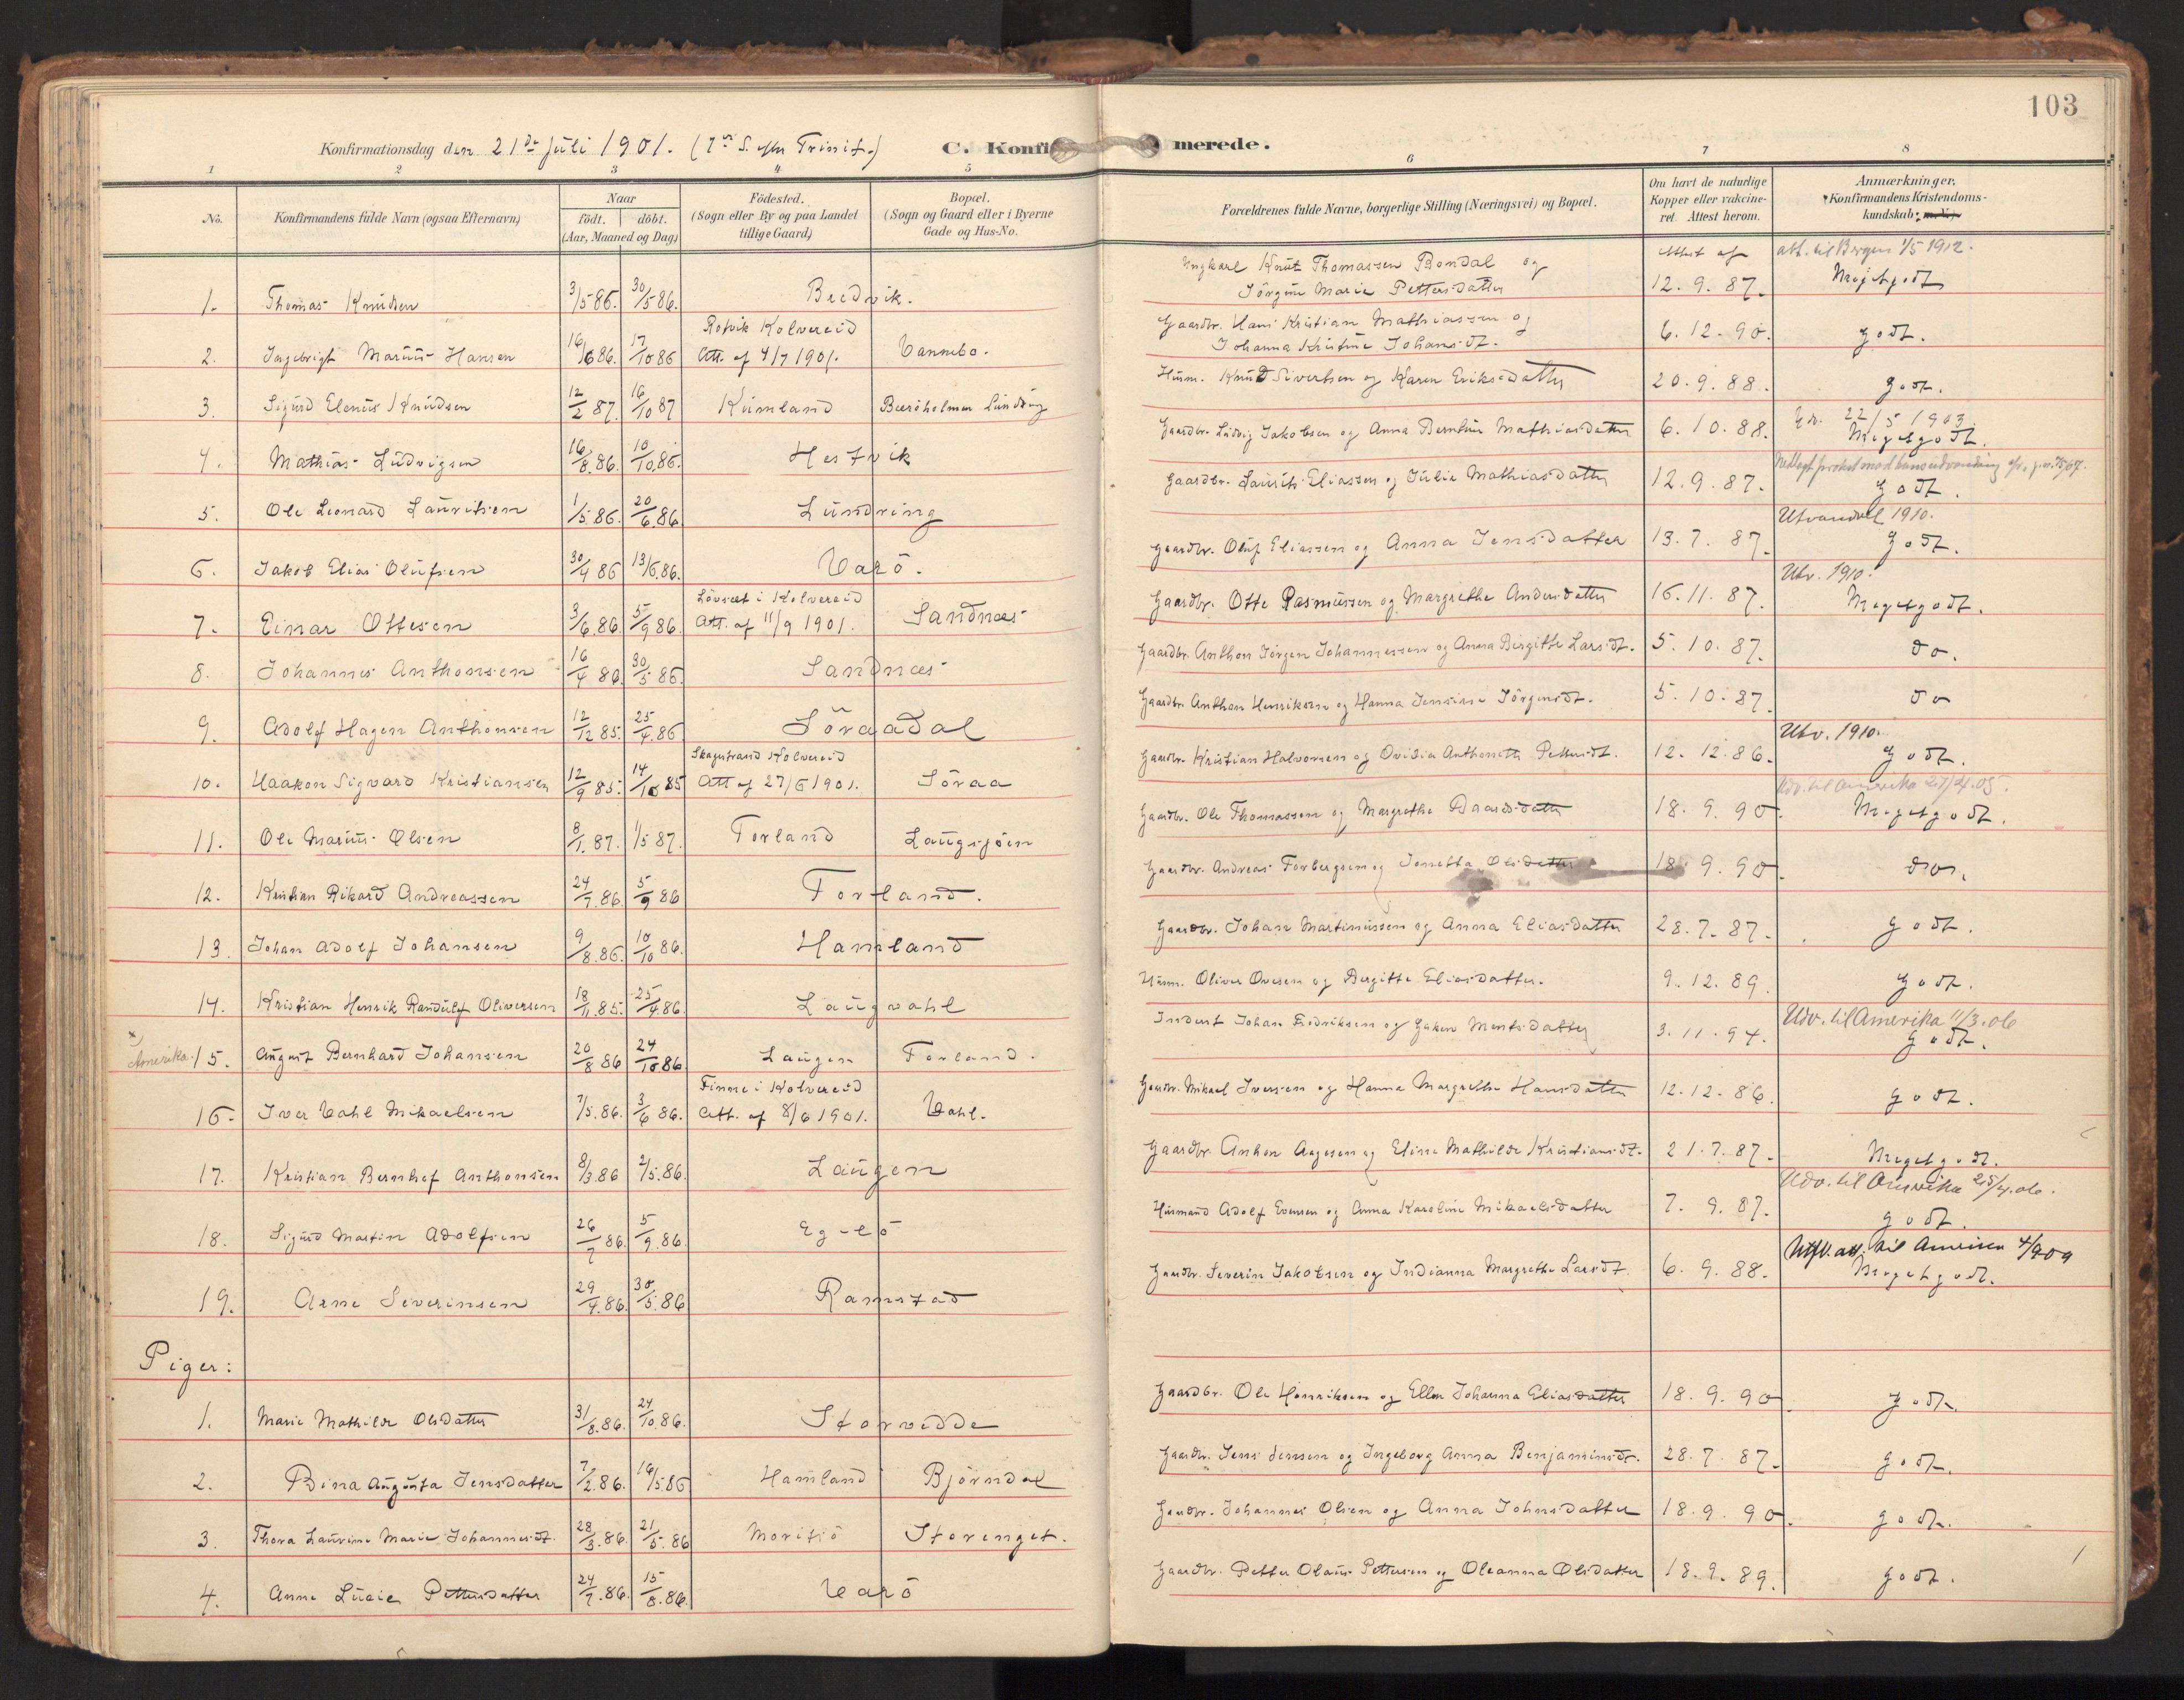 103
Konfirmationsdag den 21de Juli 1901. (7de S. efter Trinit.) C. Konfirmerede.
1 2 3 4 5 6 7 8
No. Konfirmandens fulde Navn (ogsaa Efternavn) Naar födt. döbt. (Aar, Maaned og Dag) Födested. (Sogn eller By og paa Landet tillige Gaard) Bopæl. (Sogn og Gaard eller i Byerne Gade og Hus-No. Forældrenes fulde Navne, borgerlige Stilling (Næringsvei) og Bopæl. Om havt de naturlige Kopper eller vakcineret. Attest herom. Anmærkninger. Konfirmandens Kristendomskundskab: m. V.
1. Thomas Knudsen 3/5 86. 30/5 86. Bredvik. Ungkarl Knut Thomassen Bondal og Jörgine Marie Pettersdatter Attest af 12. 9. 87. att. til Bergen 1/5 1912. Megetgodt
2. Ingebrigt Marius Hansen 16/6 86. 17/10 86 Rotvik Kolvereid Att. af 4/7 1901. Vannebo. Gaardbr. Hans Kristian Mathiassen og Johanna Kristine Johansdt. 6. 12. 90. godt.
3. Sigurd Elenus Knudsen 12/2 87. 16/10 87 Kumland Beeröholmen Lundring Husm. Knud Sivertsen og Karen Eriksdatter 20. 9. 88. godt.
4. Mathias Ludvigsen 16/8. 86. 10/10. 86. Hestvik Gaardbr. Ludvig Jakobsen og Anna Berntine Mathiasdatter 6. 10. 88. 22/5 1903. Megetgodt.
5. Ole Leonard Lauritsen 1/5. 86. 20/6. 86. Lundring Gaardbr. Laurits Eliassen og Julie Mathiasdatter 12. 9. 87. godt.
6. Jakob Elias Olufsen 30/4 86 13/6. 86. Varö. Gaardbr. Oluf Eliassen og Anna Jensdatter 13. 7. 87. Utvandret 1910. godt.
7. Einar Ottesen 3/6. 86. 5/9 86. Lövseet i Kolvereid Att. af 11/9 1901. Sandnæs Gaardbr. Otte Rasmussen og Margrethe Andersdatter 16. 11. 87. Utv. 1910. Megetgodt.
8. Johannes Anthonsen 16/4 86. 30/5 86. Sandnæs Gaardbr. Anthon Jörgen Johannessen og Anna Birgitte Larsdt. 5. 10. 87. do.
9. Adolf Hagen Anthonsen 12/12 85. 25/4. 86 Söraadal Gaardbr. Anthon Henriksen og Hanna Jensine Jörgensdt. 5. 10. 87. do
10. Haakon Sigvard Kristiansen 12/9 85. 14/10 85 Skagstrand Kolvereid Att af 27/6 1901. Söraa Gaardbr. Kristian Halvorsen og Ovidia Anthonette Pettersdt. 12. 12. 86. Utv. 1910. godt.
11. Ole Marius Olsen 8/1. 87. 1/5 87. Forland Laugsjöen Gaardbr. Ole Thomassen og Margrethe Baardsdatter 18. 9. 90. Udv. til Amerika 27/4. 05. Megetgodt.
12. Kristian Rikard Andreassen 24/7. 86. 5/9 86 Forland. Gaardbr. Andreas Torbergsen og Jonetta Olsdatter 18. 9. 90. do.
13. Johan Adolf Johansen 9/8. 86. 10/10 86. Hamland Gaardbr. Johan Martinussen og Anna Eliasdatter 28. 7. 87. godt.
14. Kristian Henrik Randulf Oliversen 18/11. 85. 25/4. 86. Laugvahl Husm. Oliver Ovesen og Bergitte Eliasdatter. 9. 12. 89. godt.
x) Amerika. 15. August Bernhard Johansen 20/8 86 24/10 86 Laugen Forland. Inderst Johan Fredriksen og Jaken Mentsdatter 3. 11. 94. Udv. til Amerika 11/3. 06 godt.
16. Iver Vahl Mikaelsen 7/5. 86. 3/6 86. Finne i Kolvereid Att. af 8/6 1901. Vahl. Gaardbr. Mikael Iversen og Hanna Margrethe Hansdatter 12. 12. 86. godt.
17. Kristian Bernhof Anthonsen 8/3. 86 2/5. 86. Laugen Gaardbr. Anton Aagesen og Eline Mathilde Kristiansdt. 21. 7. 87. Megetgodt.
18. Sigurd Martin Adolfsen 26/7 86. 5/9. 86. Egelö Husmand Adolf Evensen og Anna Karoline Mikaelsdatter 7. 9. 87. Udv. til Amerika 25/4. 06. godt.
19. Arne Severinsen 29/4. 86. 30/5. 86 Ramstad Gaardbr. Severin Jakobsen og Indianna Margrethe Larsdt. 6. 9. 88. att. til Amerika 4/9 09 Megetgodt.
Piger:
1. Marie Mathilde Olsdatter 31/8. 86. 24/10. 86. Storvedde Gaardbr. Ole Henriksen og Ellen Johanna Eliasdatter 18. 9. 90. godt.
2. Bina Augusta Jensdatter 7/2. 86. 16/5. 86 Hamland Björndal Gaardbr. Jens Jensen og Ingeborg Anna Benjaminsdt. 28. 7. 87. godt.
3. Thora Laurine Marie Johannesdt. 28/3. 86. 21/5. 86 Moritsö Storenget. Gaardbr. Johannes Olsen og Anna Johnsdatter 18. 9. 90. godt.
4. Anna Lucie Pettersdatter 24/7. 86. 15/8. 86. Varö Gaardbr. Petter Olaus Pettersen og Oleanna Olsdatter 18. 9. 89. godt.